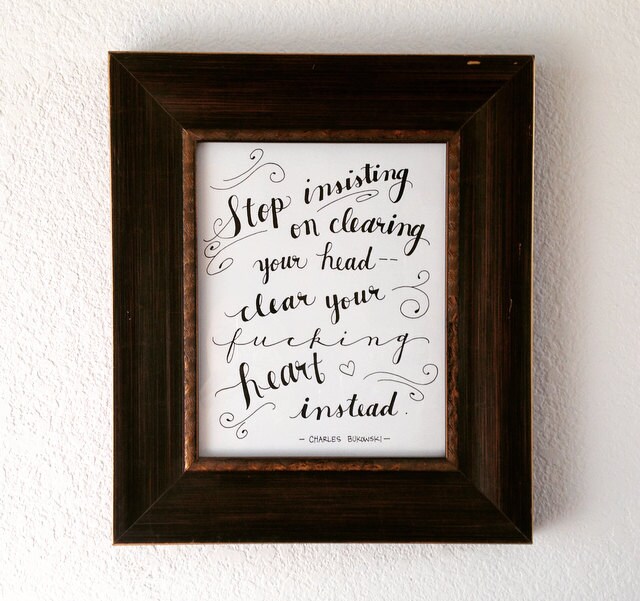 Stop insisting
on clearing
your head--
clear your
fucking
heart
instead.
- CHARLES BUKOWSKI -